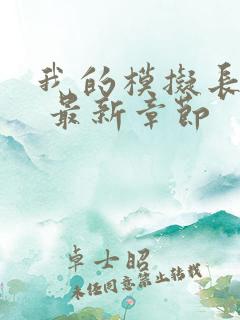 我的模擬長
最新章節
卓士昭
未任同意禁止转载